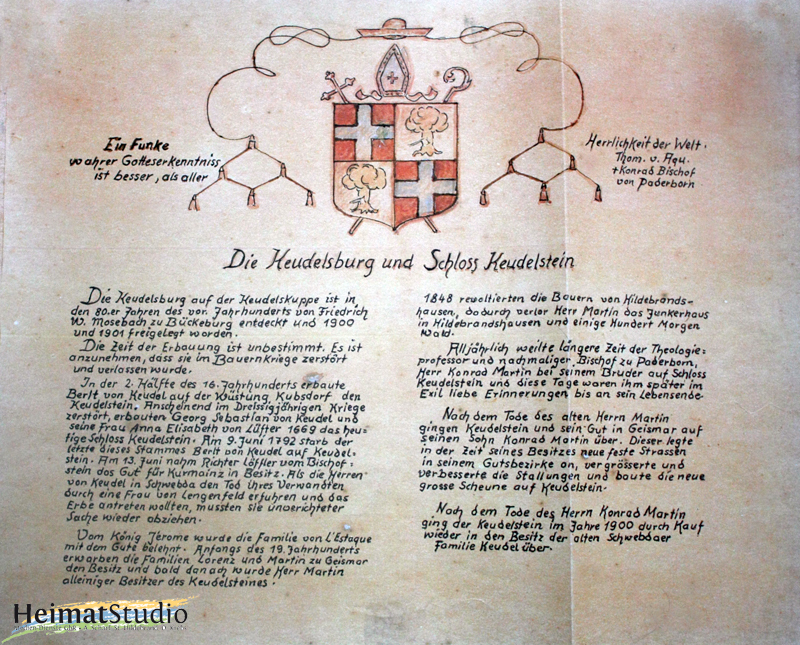 Ein Funke
wahrer Gotteserkenntniss
ist besser, als aller
Herrlichkeit der Welt.
Thom. v. Aqu.
+Konrad Bischof
von Paderborn
Die Keudelsburg und Schloss Keudelstein
Die Keudelsburg auf der Keudelskuppe ist in
den 80.er Jahren des vor. Jahrhunderts von Friedrich
W. Mosebach zu Bückeburg entdeckt und 1900
und 1901 freigelegt worden.
Die Zeit der Erbauung ist unbestimmt. Es ist
anzunehmen, dass sie im Bauernkriege zerstört
und verlassen wurde.
In der 2. Hälfte des 16. Jahrhunderts erbaute
Berlt von Keudel auf der Wüstung Kubsdorf den
Keudelstein. Anscheinend im Dreissigjährigen Kriege
zerstört, erbauten Georg Sebastian von Keudel und
seine Frau Anna Elisabeth von Lüfter 1669 das heu=
tige Schloss Keudelstein. Am 9. Juni 1792 starb der
letzte dieses Stammes Berlt von Keudel auf Keudel=
stein. Am 13. Juni nahm Richter Löffler vom Bischof=
stein das Gut für Kurmainz in Besitz. Als die Herren
von Keudel in Schwebda den Tod ihres Verwandten
durch eine Frau von Lengenfeld erfuhren und das
Erbe antreten wollten, mussten sie unverichteter
Sache wieder abziehen.
Vom König Jérome wurde die Familie von L'Estaque
mit dem Gute belehnt. Anfangs des 19. Jahrhunderts
erwarben die Familien Lorenz und Martin zu Geismar
den Besitz und bald danach wurde Herr Martin
alleiniger Besitzer des Keudelsteines.
1848 revoltierten die Bauern von Hildebrands=
hausen, dadurch verlor Herr Martin das Junkerhaus
in Hildebrandshausen und einige Hundert Morgen
Wald.
Alljährlich weilte längere Zeit der Theologie=
professor und nachmaliger Bischof zu Paderborn,
Herr Konrad Martin bei seinem Bruder auf Schloss
Keudelstein und diese Tage waren ihm später im
Exil liebe Erinnerungen bis an sein Lebensende.
Nach dem Tode des alten Herrn Martin
gingen Keudelstein und sein Gut in Geismar auf
seinen Sohn Konrad Martin über. Dieser legte
in der Zeit seines Besitzes neue feste Strassen
in seinem Gutsbezirke an, vergrösserte und
verbesserte die Stallungen und baute die neue
grosse Scheune auf Keudelstein.
Nach dem Tode des Herrn Konrad Martin
ging der Keudelstein im Jahre 1900 durch Kauf
wieder in den Besitz der alten Schwebdaer
Familie Keudel über.
HeimatStudio